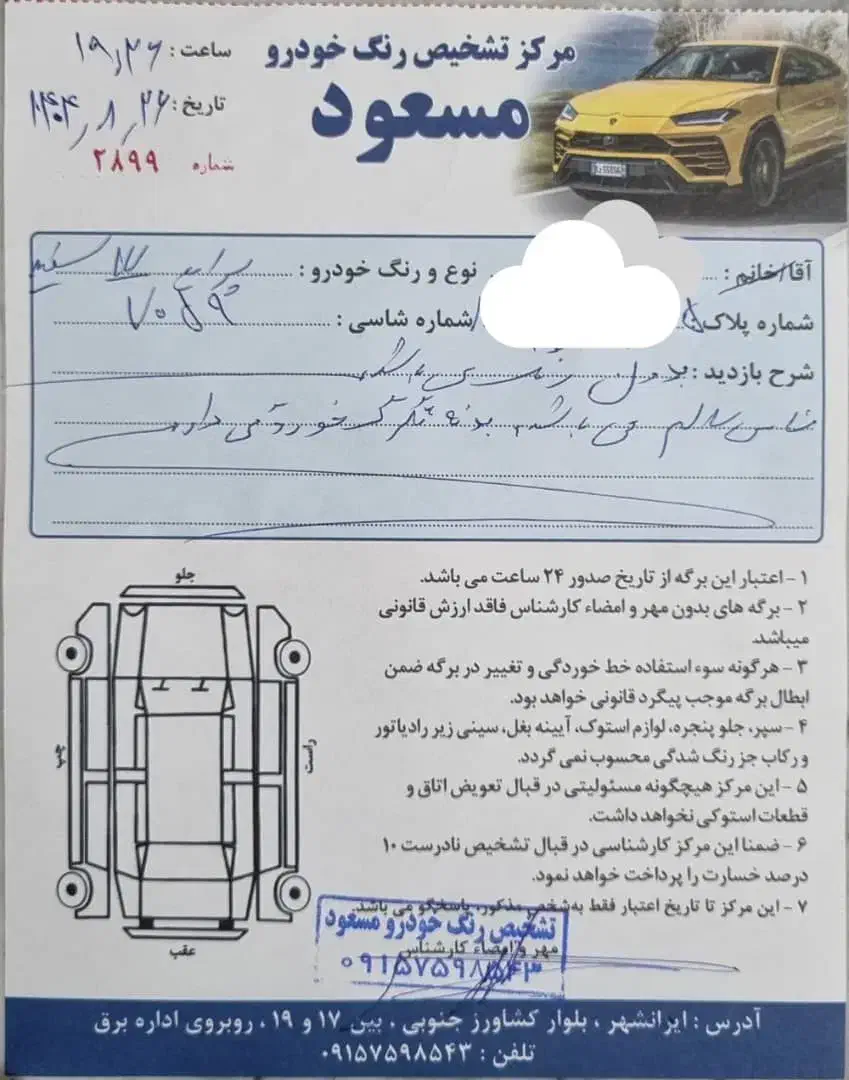 مرکز تشخیص رنگ خودرو
مسعود
ساعت : ۱۹٫۲۶
تاریخ : ۱۴۰۴٫۸٫۲۶
شماره ۲۸۹۹
آقا/خانم : نوع و رنگ خودرو : پراید ۱۷ سفید
شماره پلاک ۵ /شماره شاسی :
شرح بازدید : بدون رنگ می باشد
شاسی سالم می باشد بدنه تگرگ خوردگی دارد
۱ - اعتبار این برگه از تاریخ صدور ۲۴ ساعت می باشد.
۲ - برگه های بدون مهر و امضاء کارشناس فاقد ارزش قانونی
میباشد.
۳ - هرگونه سوء استفاده خط خوردگی و تغییر در برگه ضمن
ابطال برگه موجب پیگرد قانونی خواهد بود.
۴ - سپر، جلو پنجره، لوازم استوک، آیینه بغل، سینی زیر رادیاتور
و رکاب جز رنگ شدگی محسوب نمی گردد.
۵ - این مرکز هیچگونه مسئولیتی در قبال تعویض اتاق و
قطعات استوکی نخواهد داشت.
۶ - ضمنا این مرکز کارشناسی در قبال تشخیص نادرست ۱۰
درصد خسارت را پرداخت خواهد نمود.
۷ - این مرکز تا تاریخ اعتبار فقط به شخص مذکور، پاسخگو می باشد.
جلو
چپ
راست
عقب
تشخیص رنگ خودرو مسعود
مهر و امضاء کارشناس
۰۹۱۵۷۵۹۸۵۴۳
آدرس : ایرانشهر ، بلوار کشاورز جنوبی ، بین ۱۷ و ۱۹ ، روبروی اداره برق
تلفن : ۰۹۱۵۷۵۹۸۵۴۳